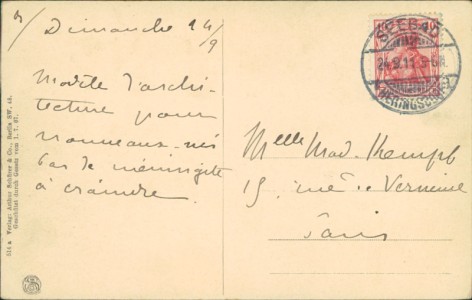 Dimanche 24/9
Modèle d'archi-
tecture pour
nouveaux-nés
Pas de méningite
à craindre.
SEEBAD
24.9.11.
HERINGSDORF
Melle Mad. Kempf
15, rue de Verneuil
Paris
514 a Verlag: Arthur Schürer & Co., Berlin SW. 48.
Geschützt durch Gesetz vom 1. 7. 07.